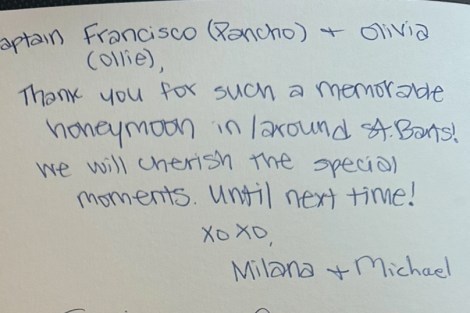 aptain Francisco (Pancho) + Olivia
(Ollie),
Thank you for such a memorable
honeymoon in/around St. Barts!
We will cherish the special
moments. Until next time!
XOXO,
Milana + Michael